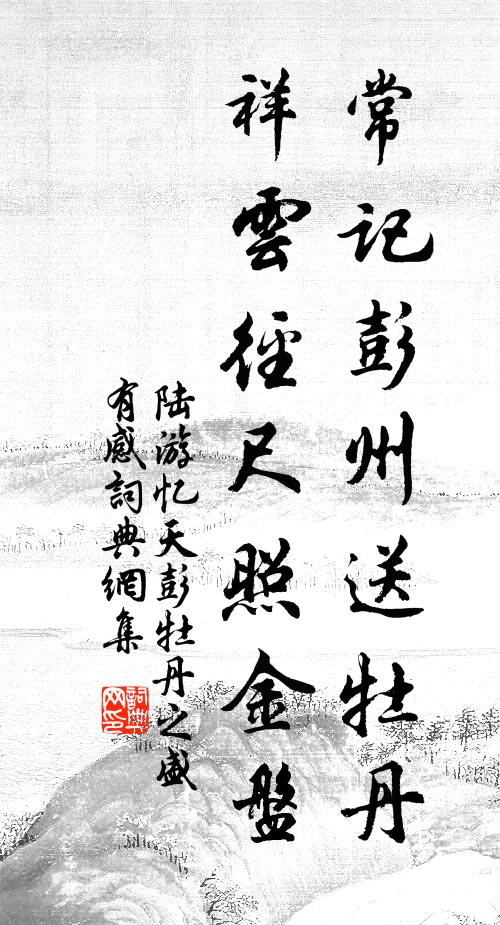 常記彭州送牡丹
祥雲徑尺照金盤
陆游忆天彭牡丹之盛
有感詞典網集